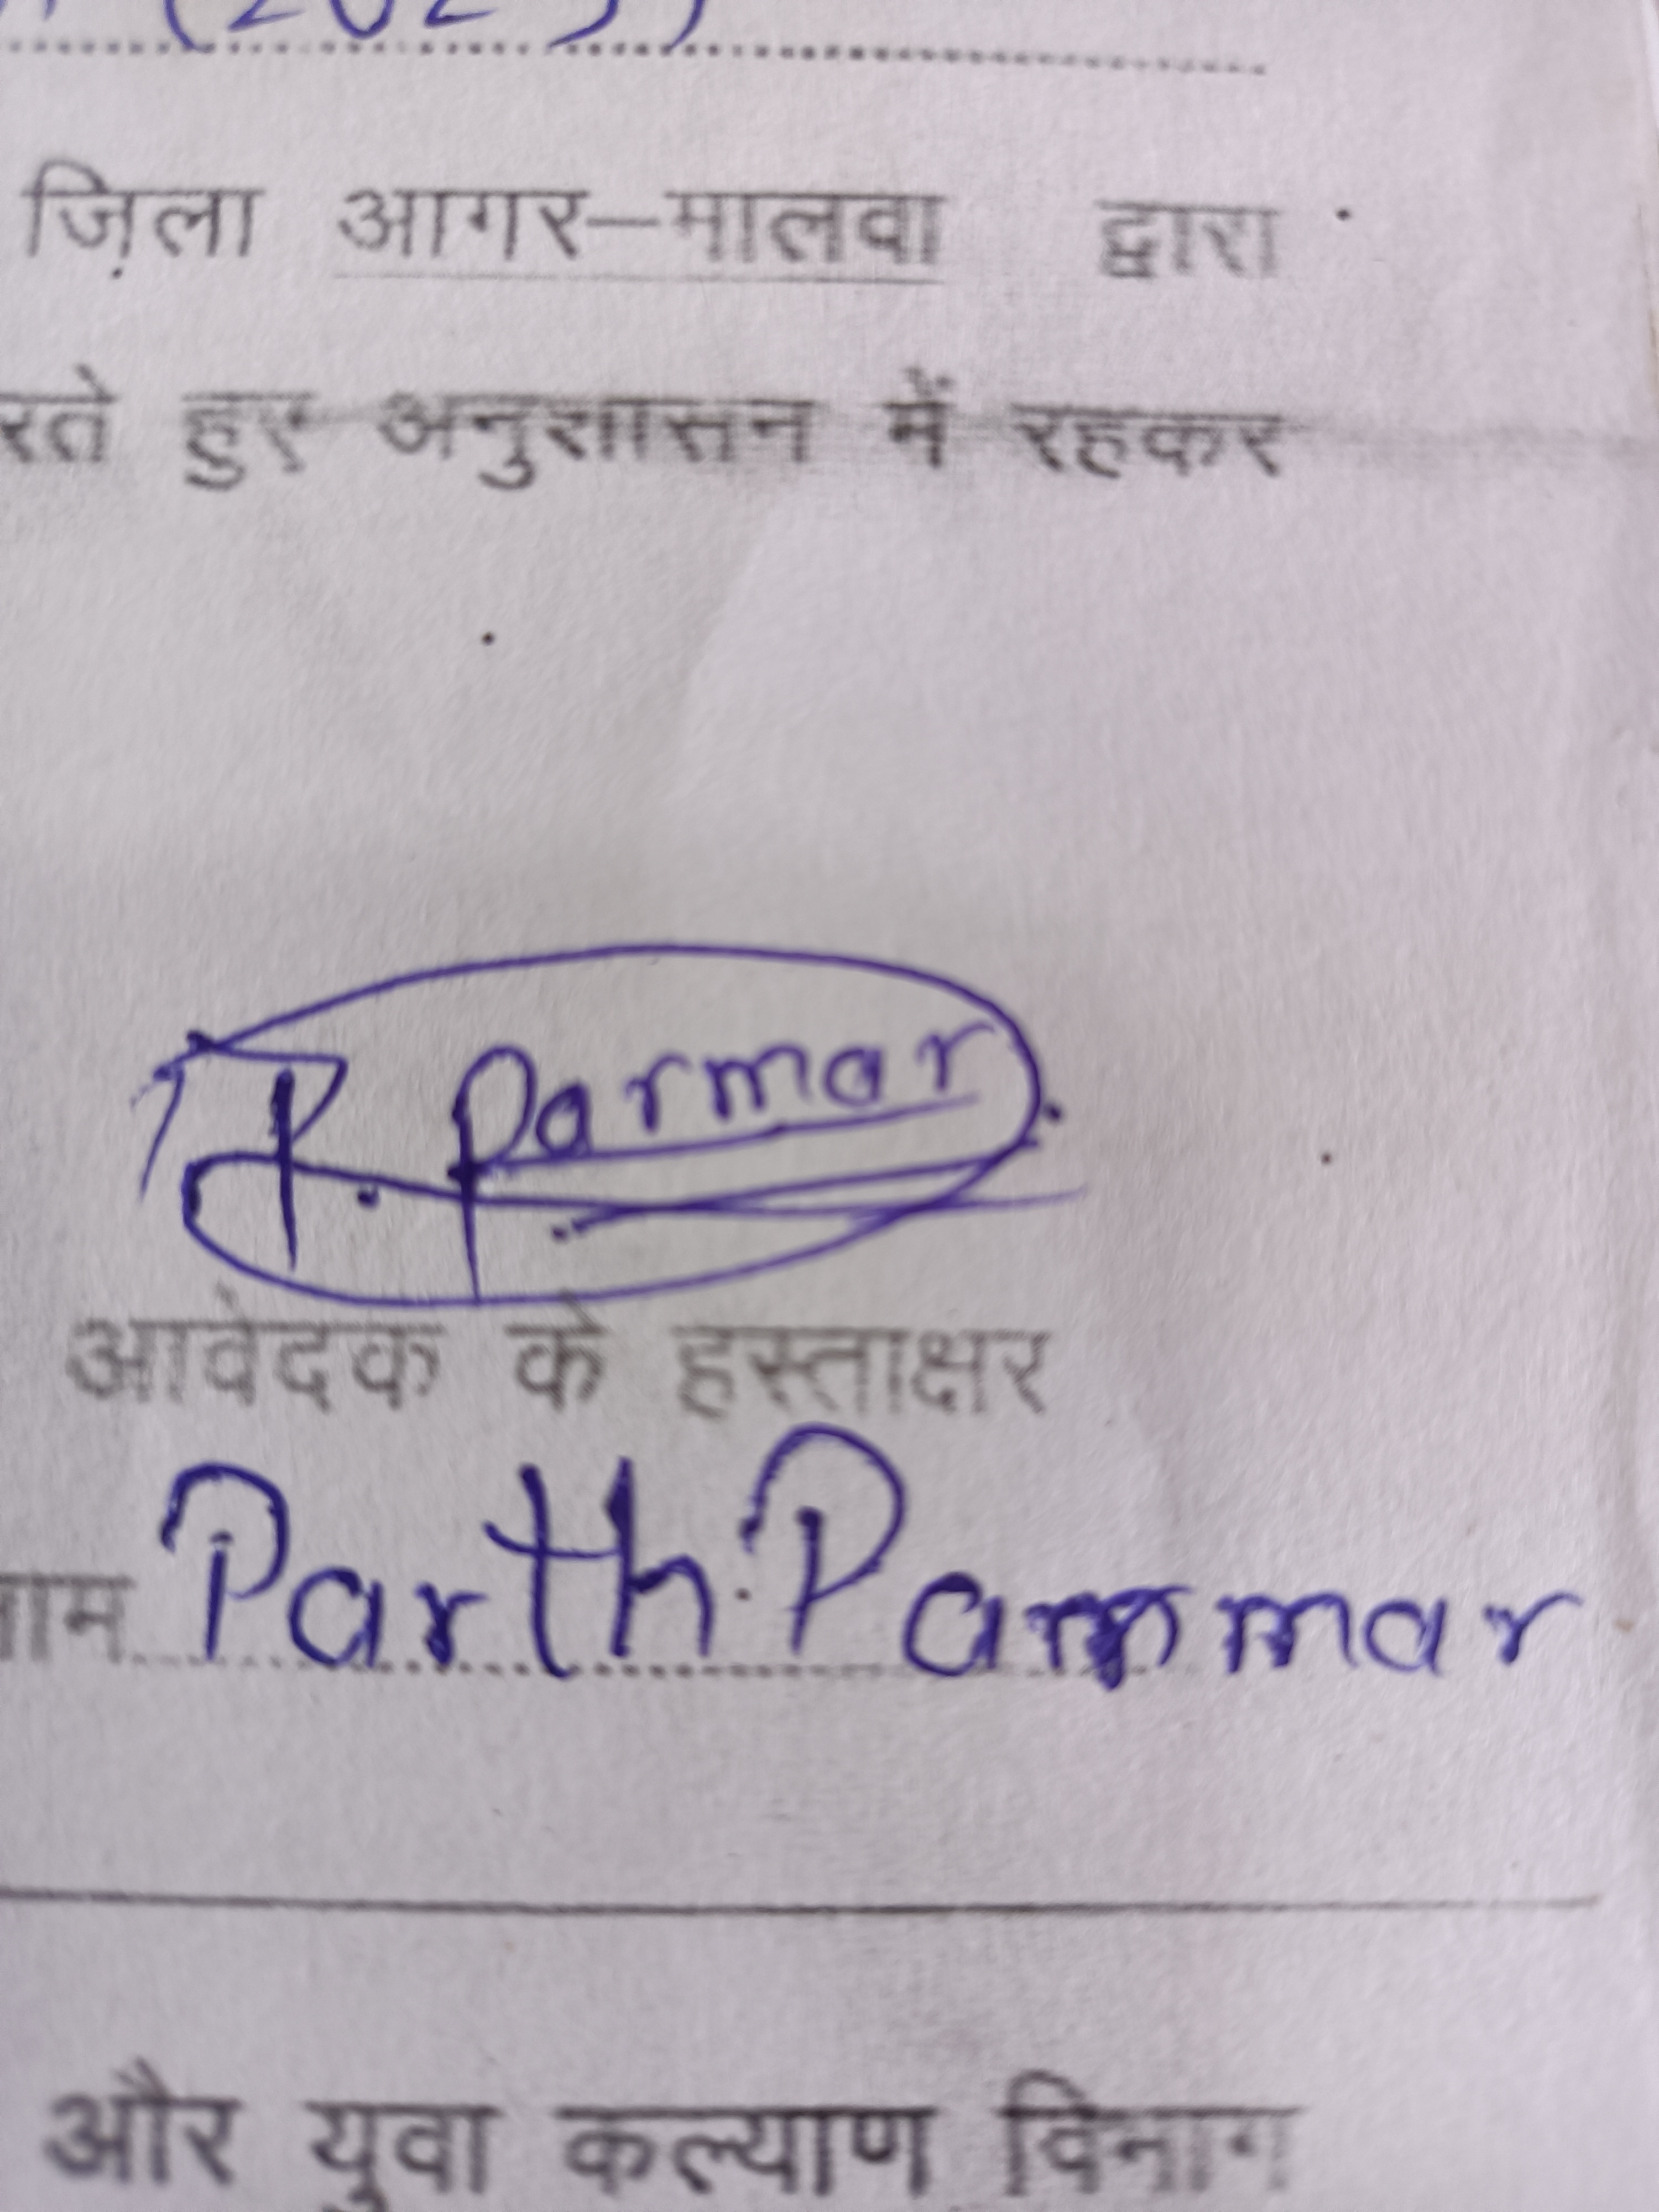 (2025)
जि़ला आगर–मालवा द्वारा
रते हुए अनुशासन में रहकर
P. Parmar
आवेदक के हस्ताक्षर
नाम Parth Parmar
और युवा कल्याण विभाग